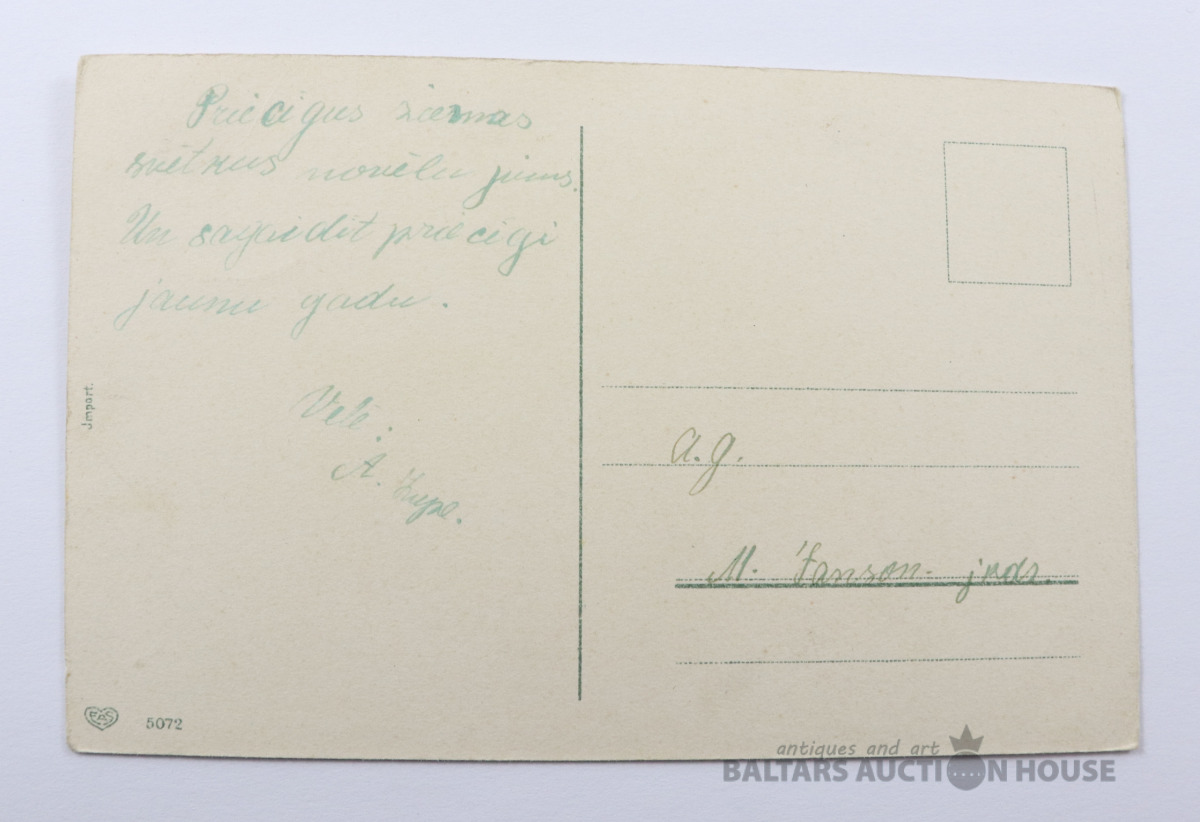 Priecigus ziemas
svētkus novēlu jums.
Un sagaidit priecigi
jaunu gadu.
Vēlē:
A.
Jmport.
EAS
5072
A. g.
M. Janson. jkdz.
antiques and art
BALTARS AUCTION HOUSE